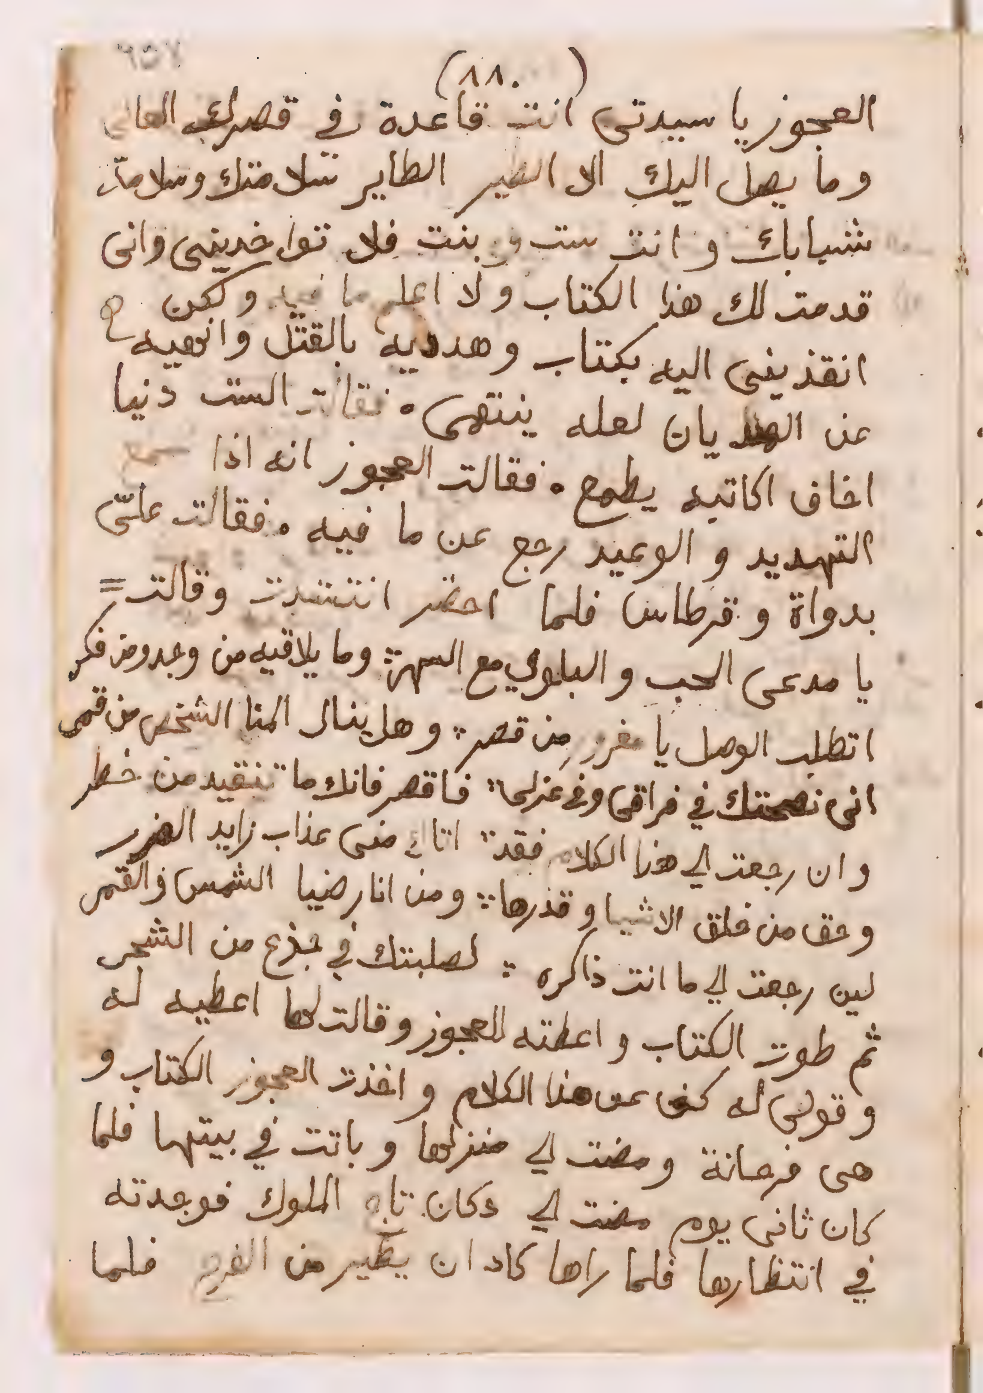 ٦٥٧
(٨٨٠)
العجوز يا سيدتى انت قاعدة في قصرك العالى
وما يصل اليك الا الطير الطاير سلامتك وسلامة
شبابك و انت ست و بنت فلا تواخدينى وانى
قدمت لك هذا الكتاب ولا اعلم ما فيه ولكن
انقذينى اليه بكتاب وهدديه بالقتل وانهيه
عن الهديان لعله ينتهى . فقالت الست دنيا
اخاف اكاتبه يطمع . فقالت العجوز انه اذا سمع
التهديد و الوعيد رجع عن ما فيه . فقالت علىّ
بدواة و قرطاس فلما احضر انتشدت وقالت =
يا مدعى الحب و البلوي مع السهر : وما يلاقيه من وجد ومن فكر
اتطلب الوصل يا مغرور من قمر : وهل ينال المنا الشخص من قمر
انى نصحتك في فراقى وفي عزلى : فاقصر فانك ما تنفيد من خطر
و ان رجعت الي هذا الكلام فقد : اتاك منى عذاب زايد الضرر
و حق من خلق الاشيا و قدرها : ومن انار ضيا الشمس و القمر
لين رجعت الي ما انت ذاكره : لصلبتك في جذع من الشجر
ثم طوت الكتاب و اعطته للعجوز وقالت لها اعطيه له
وقولى له كف عن هذا الكلام و اخذت العجوز الكتاب و
هى فرحانة ومضت الي منزلها و باتت في بيتها فلما
كان ثانى يوم مضت الي دكان تاج الملوك فوجدته
في انتظارها فلما راها كاد ان يطير من الفرح فلما